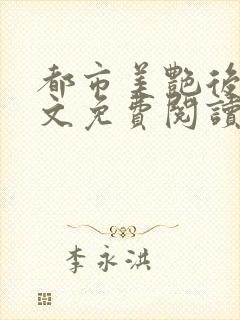 都市美艷後
文免費閱讀
李永洪